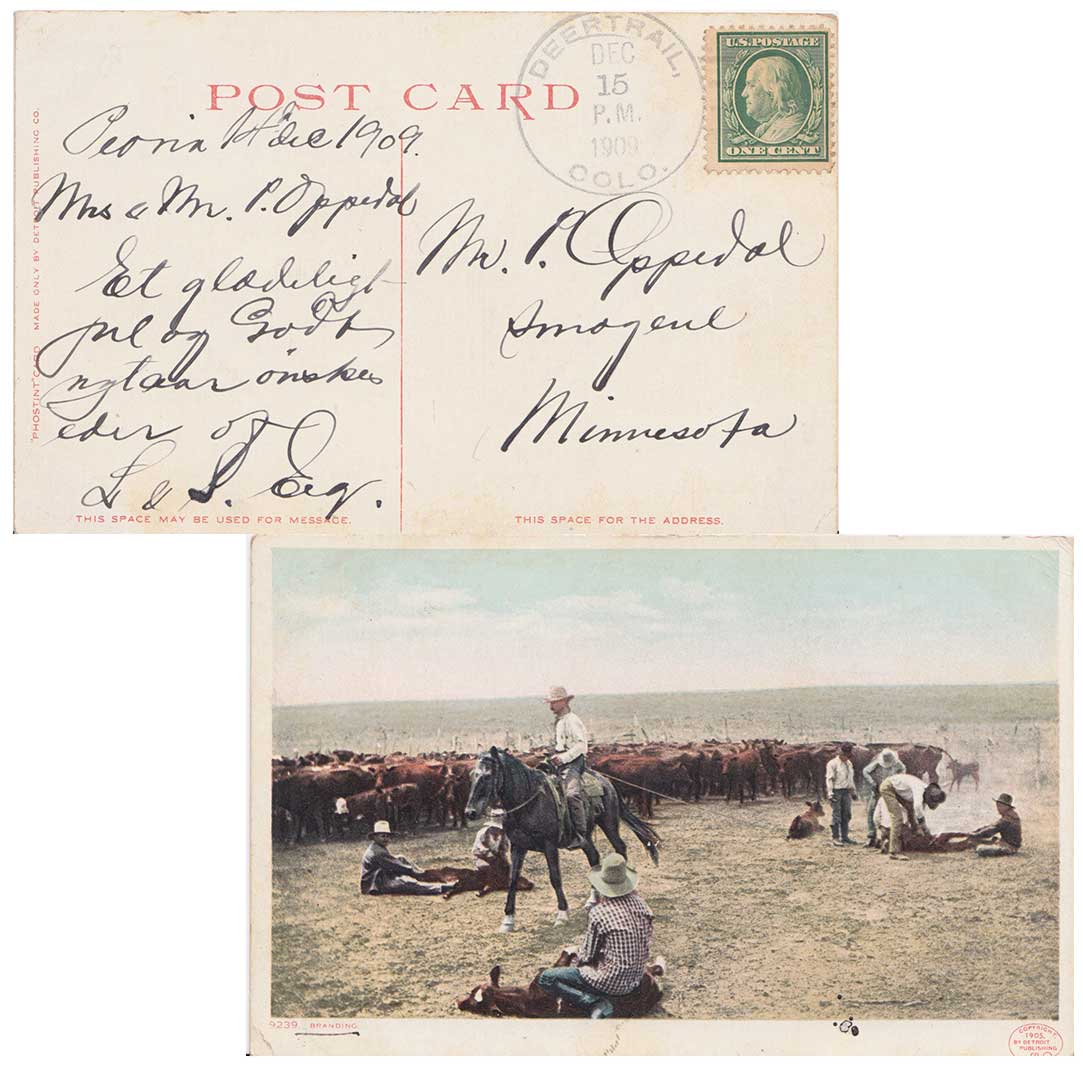 POST CARD
DEERTRAIL,
DEC
15
P.M.
1909
COLO.
U.S. POSTAGE
ONE CENT
Peoria 14 dec 1909.
Mrs & Mr. P. Oppedal
Et glædeligt
jul og Godt
nytaar önskes
eder af
L & S.
Mr. P. Oppedal
Minnesota
"PHOSTINT" CARD MADE ONLY BY DETROIT PUBLISHING CO.
THIS SPACE MAY BE USED FOR MESSAGE.
THIS SPACE FOR THE ADDRESS.
9239. BRANDING.
COPYRIGHT,
1905,
BY DETROIT
PUBLISHING
CO.